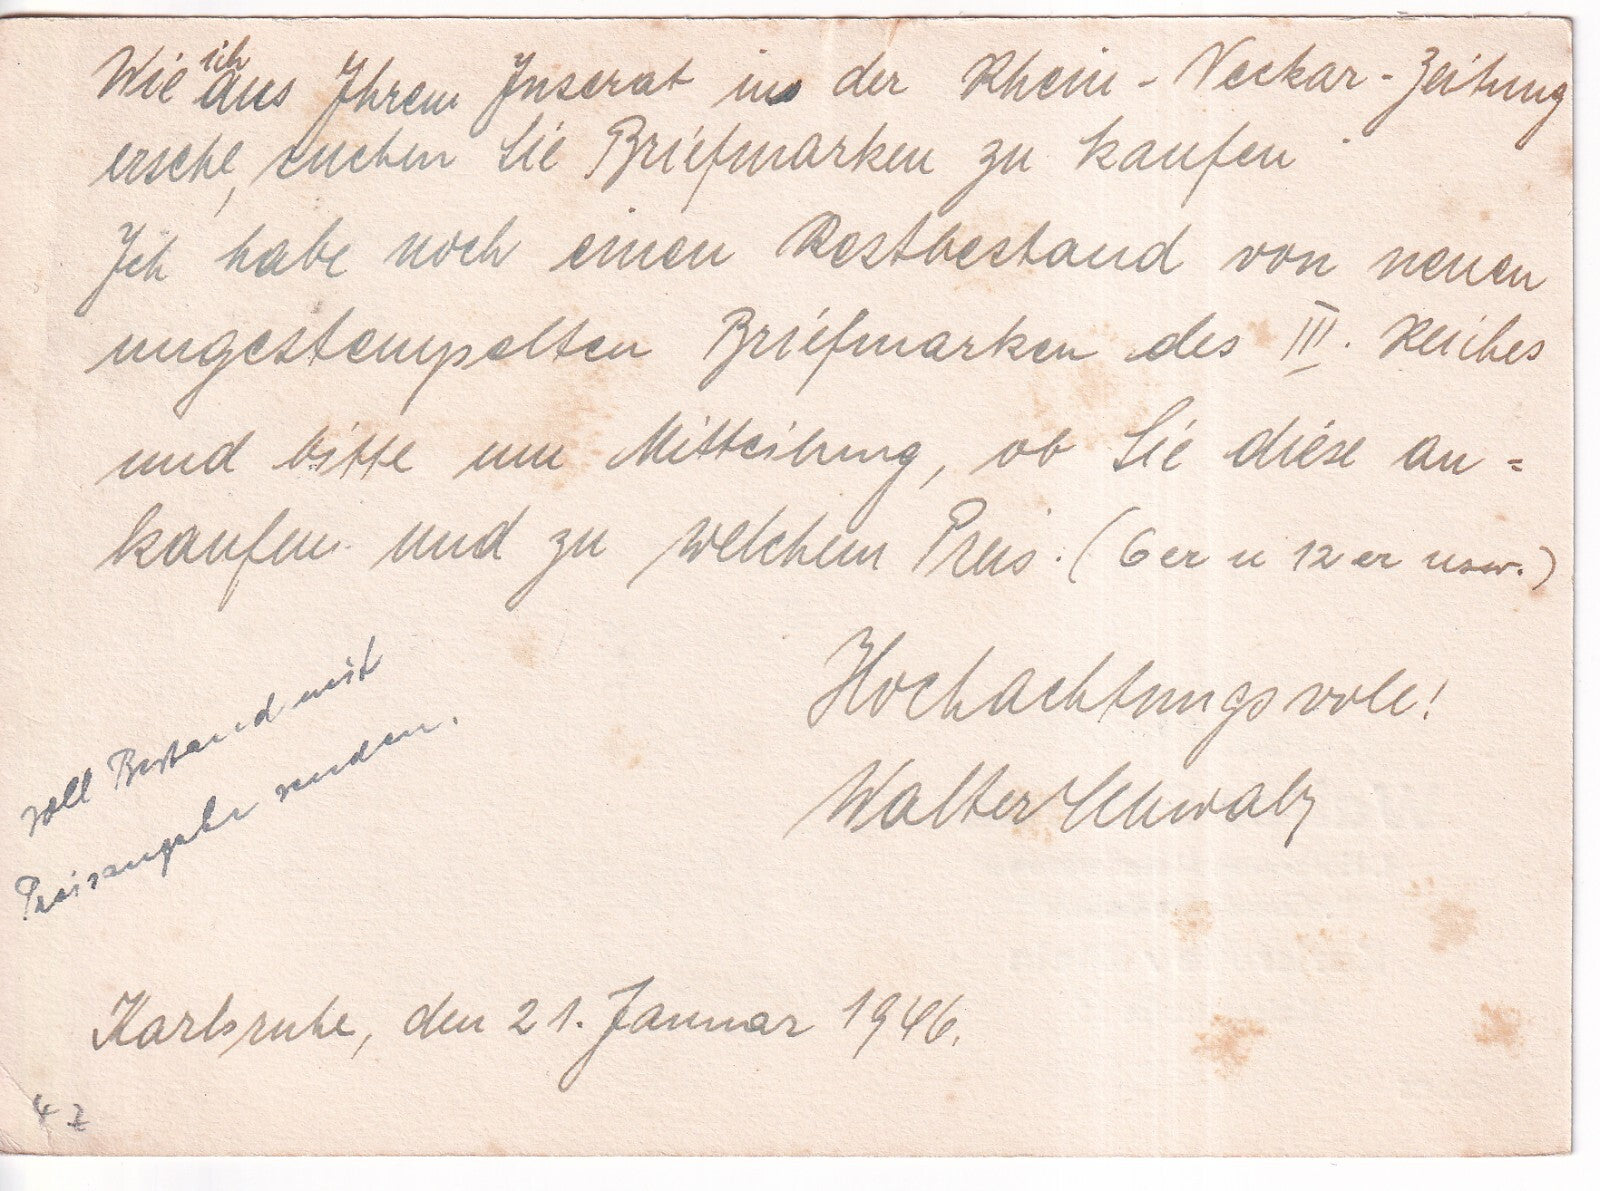 Wie ich aus Ihrem Inserat in der Rhein-Neckar-Zeitung
ersehe, suchen Sie Briefmarken zu kaufen
Ich habe noch einen Restbestand von neuen
ungestempelten Briefmarken des III. Reiches
und bitte um Mitteilung, ob Sie diese an=
kaufen und zu welchem Preis. (6er u 12er usw.)
Hochachtungsvoll!
Walter Schwalz
soll Bestand mit
Preisangabe senden.
Karlsruhe, den 21. Januar 1946.